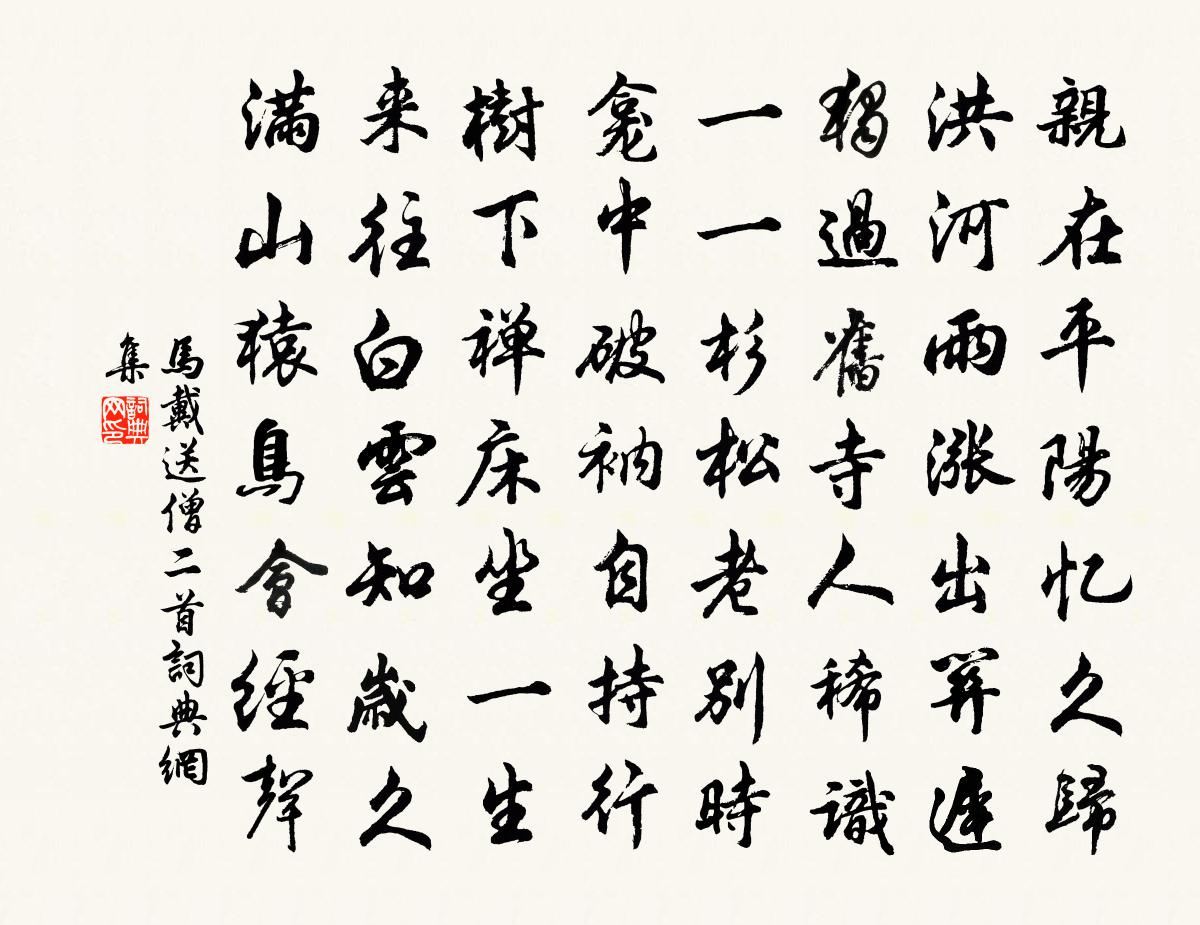 親在平陽忆久歸
洪河雨漲出関遲
獨過舊寺人稀識
一一杉松老別時
龛中破衲自持行
樹下禅床坐一生
来往白雲知歲久
滿山猿鳥會經聲
馬戴送僧二首詞典網
集
詞典网印